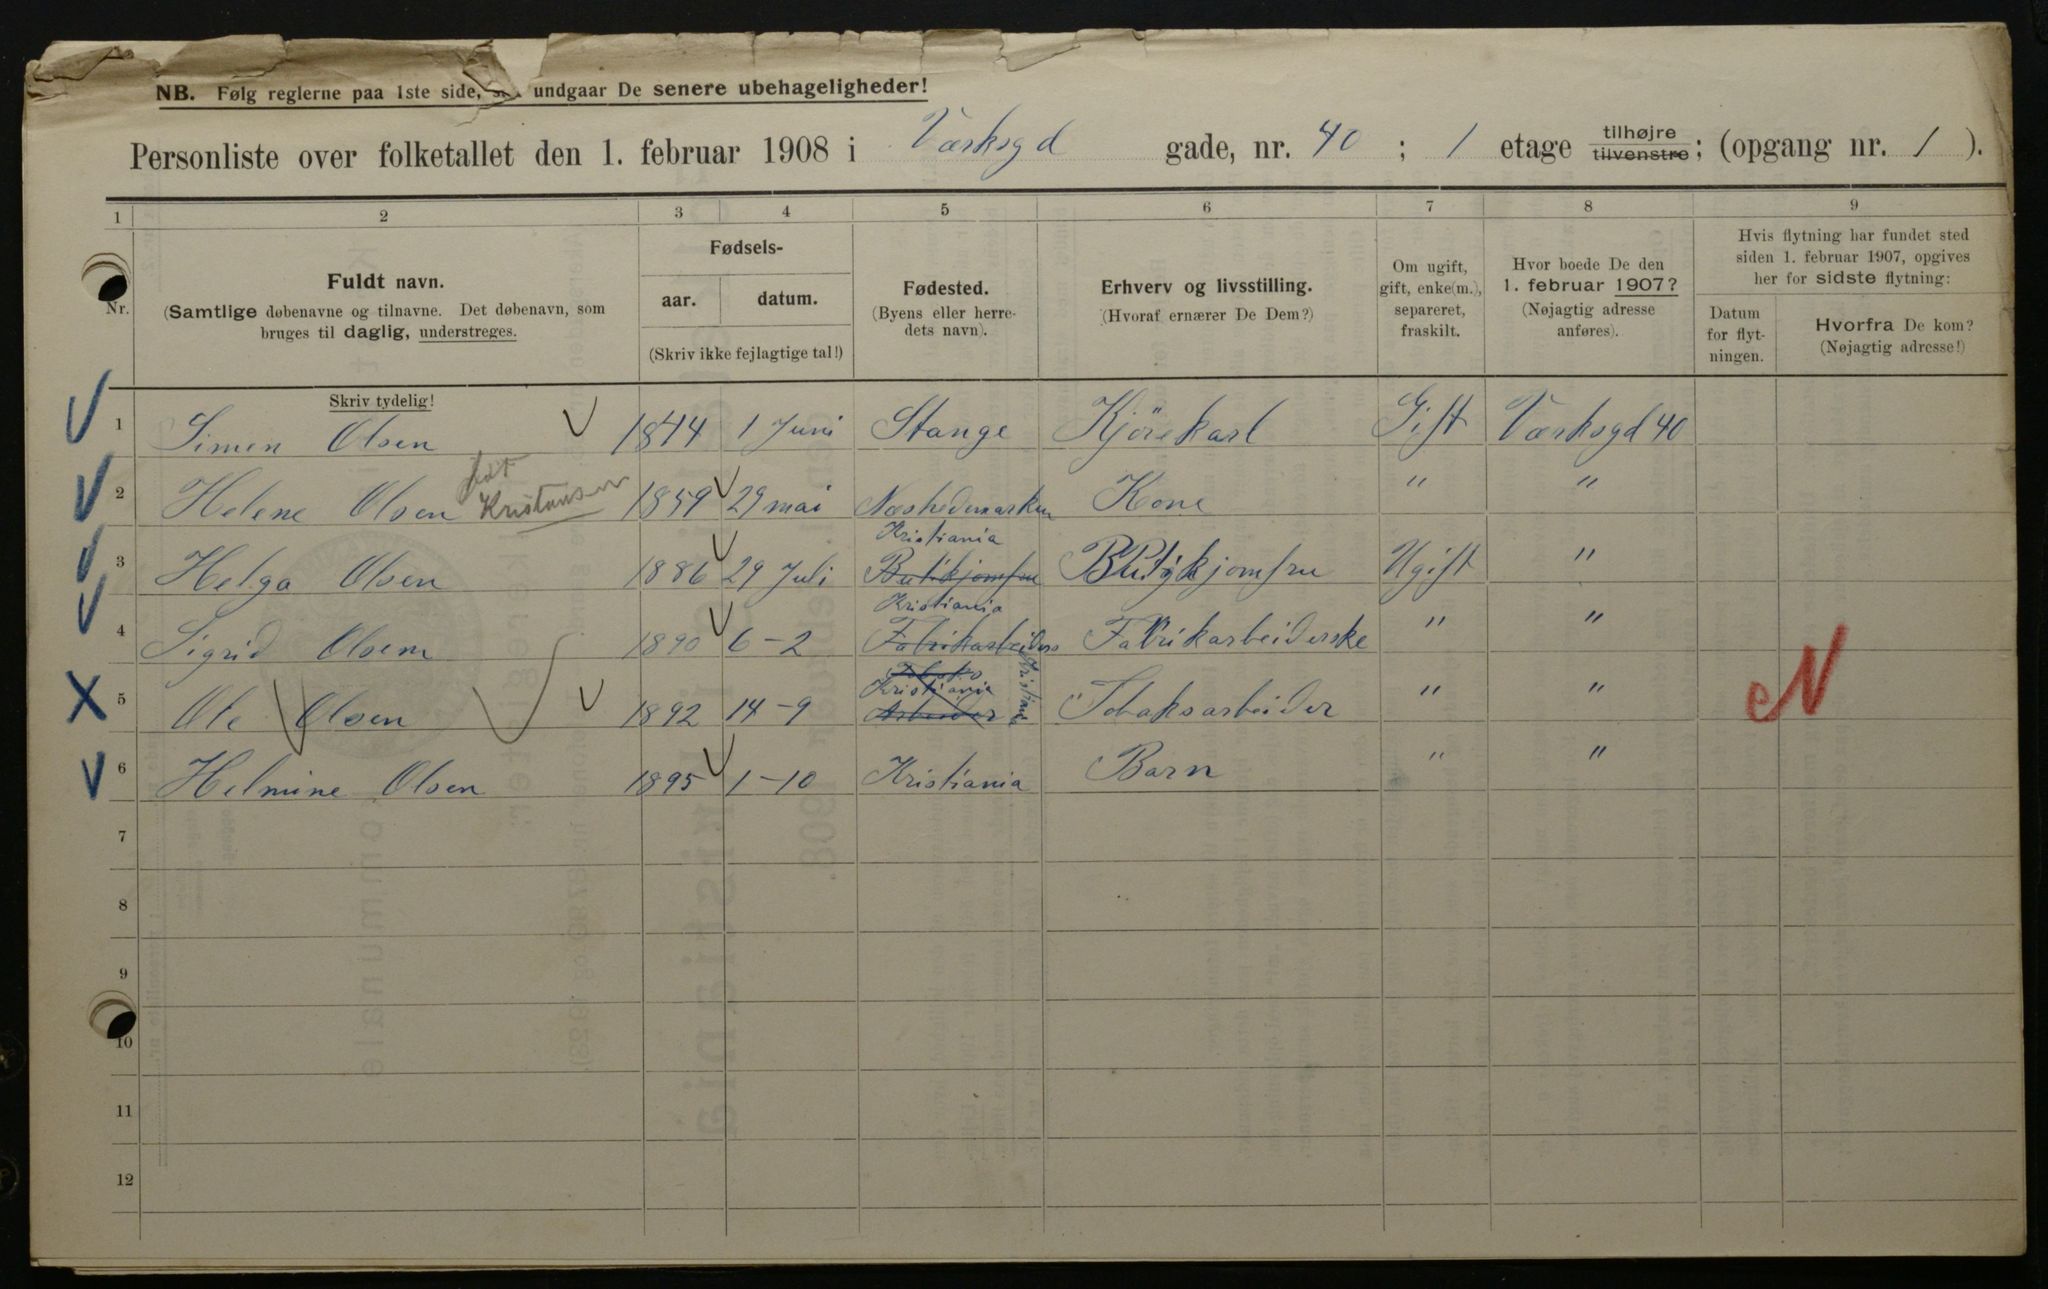 NB. Følg reglerne paa 1ste side, undgaar De senere ubehageligheder!
Personliste over folketallet den 1. februar 1908 i Værksgd gade, nr. 40 ; 1 etage tilhøjre tilvenstre; (opgang nr. 1 ).
1 2 3 4 5 6 7 8 9
Nr.
Fuldt navn.
(Samtlige døbenavne og tilnavne. Det døbenavn, som
bruges til daglig, understreges.
Skriv tydelig!
Fødsels-
aar. datum.
(Skriv ikke fejlagtige tal!)
Fødested.
(Byens eller herre-
dets navn).
Erhverv og livsstilling.
(Hvoraf ernærer De Dem?)
Om ugift,
gift, enke(m.),
separeret,
fraskilt.
Hvor boede De den
1. februar 1907?
(Nøjagtig adresse
anføres).
Hvis flytning har fundet sted
siden 1. februar 1907, opgives
her for sidste flytning:
Datum
for flyt-
ningen.
Hvorfra De kom?
(Nøjagtig adresse!)
1 Simen Olsen 1844 1 Juni Stange Kjörekarl Gift Værksgd 40
født
2 Helene Olsen Kristansen 1859 29 mai Næshedemarken Kone " "
Kristiania
3 Helga Olsen 1886 29 Juli Butikjomfru Butikjomfru Ugift "
Kristiania
4 Sigrid Olsen 1890 6-2 Fabrikarbeiders Fabrikarbeiderske " "
Kristiania
5 Ole Olsen 1892 14-9 Arbeider Kristiania Tobaksarbeider " " N
6 Helmine Olsen 1895 1-10 Kristiania Barn " "
7
8
9
10
11
12